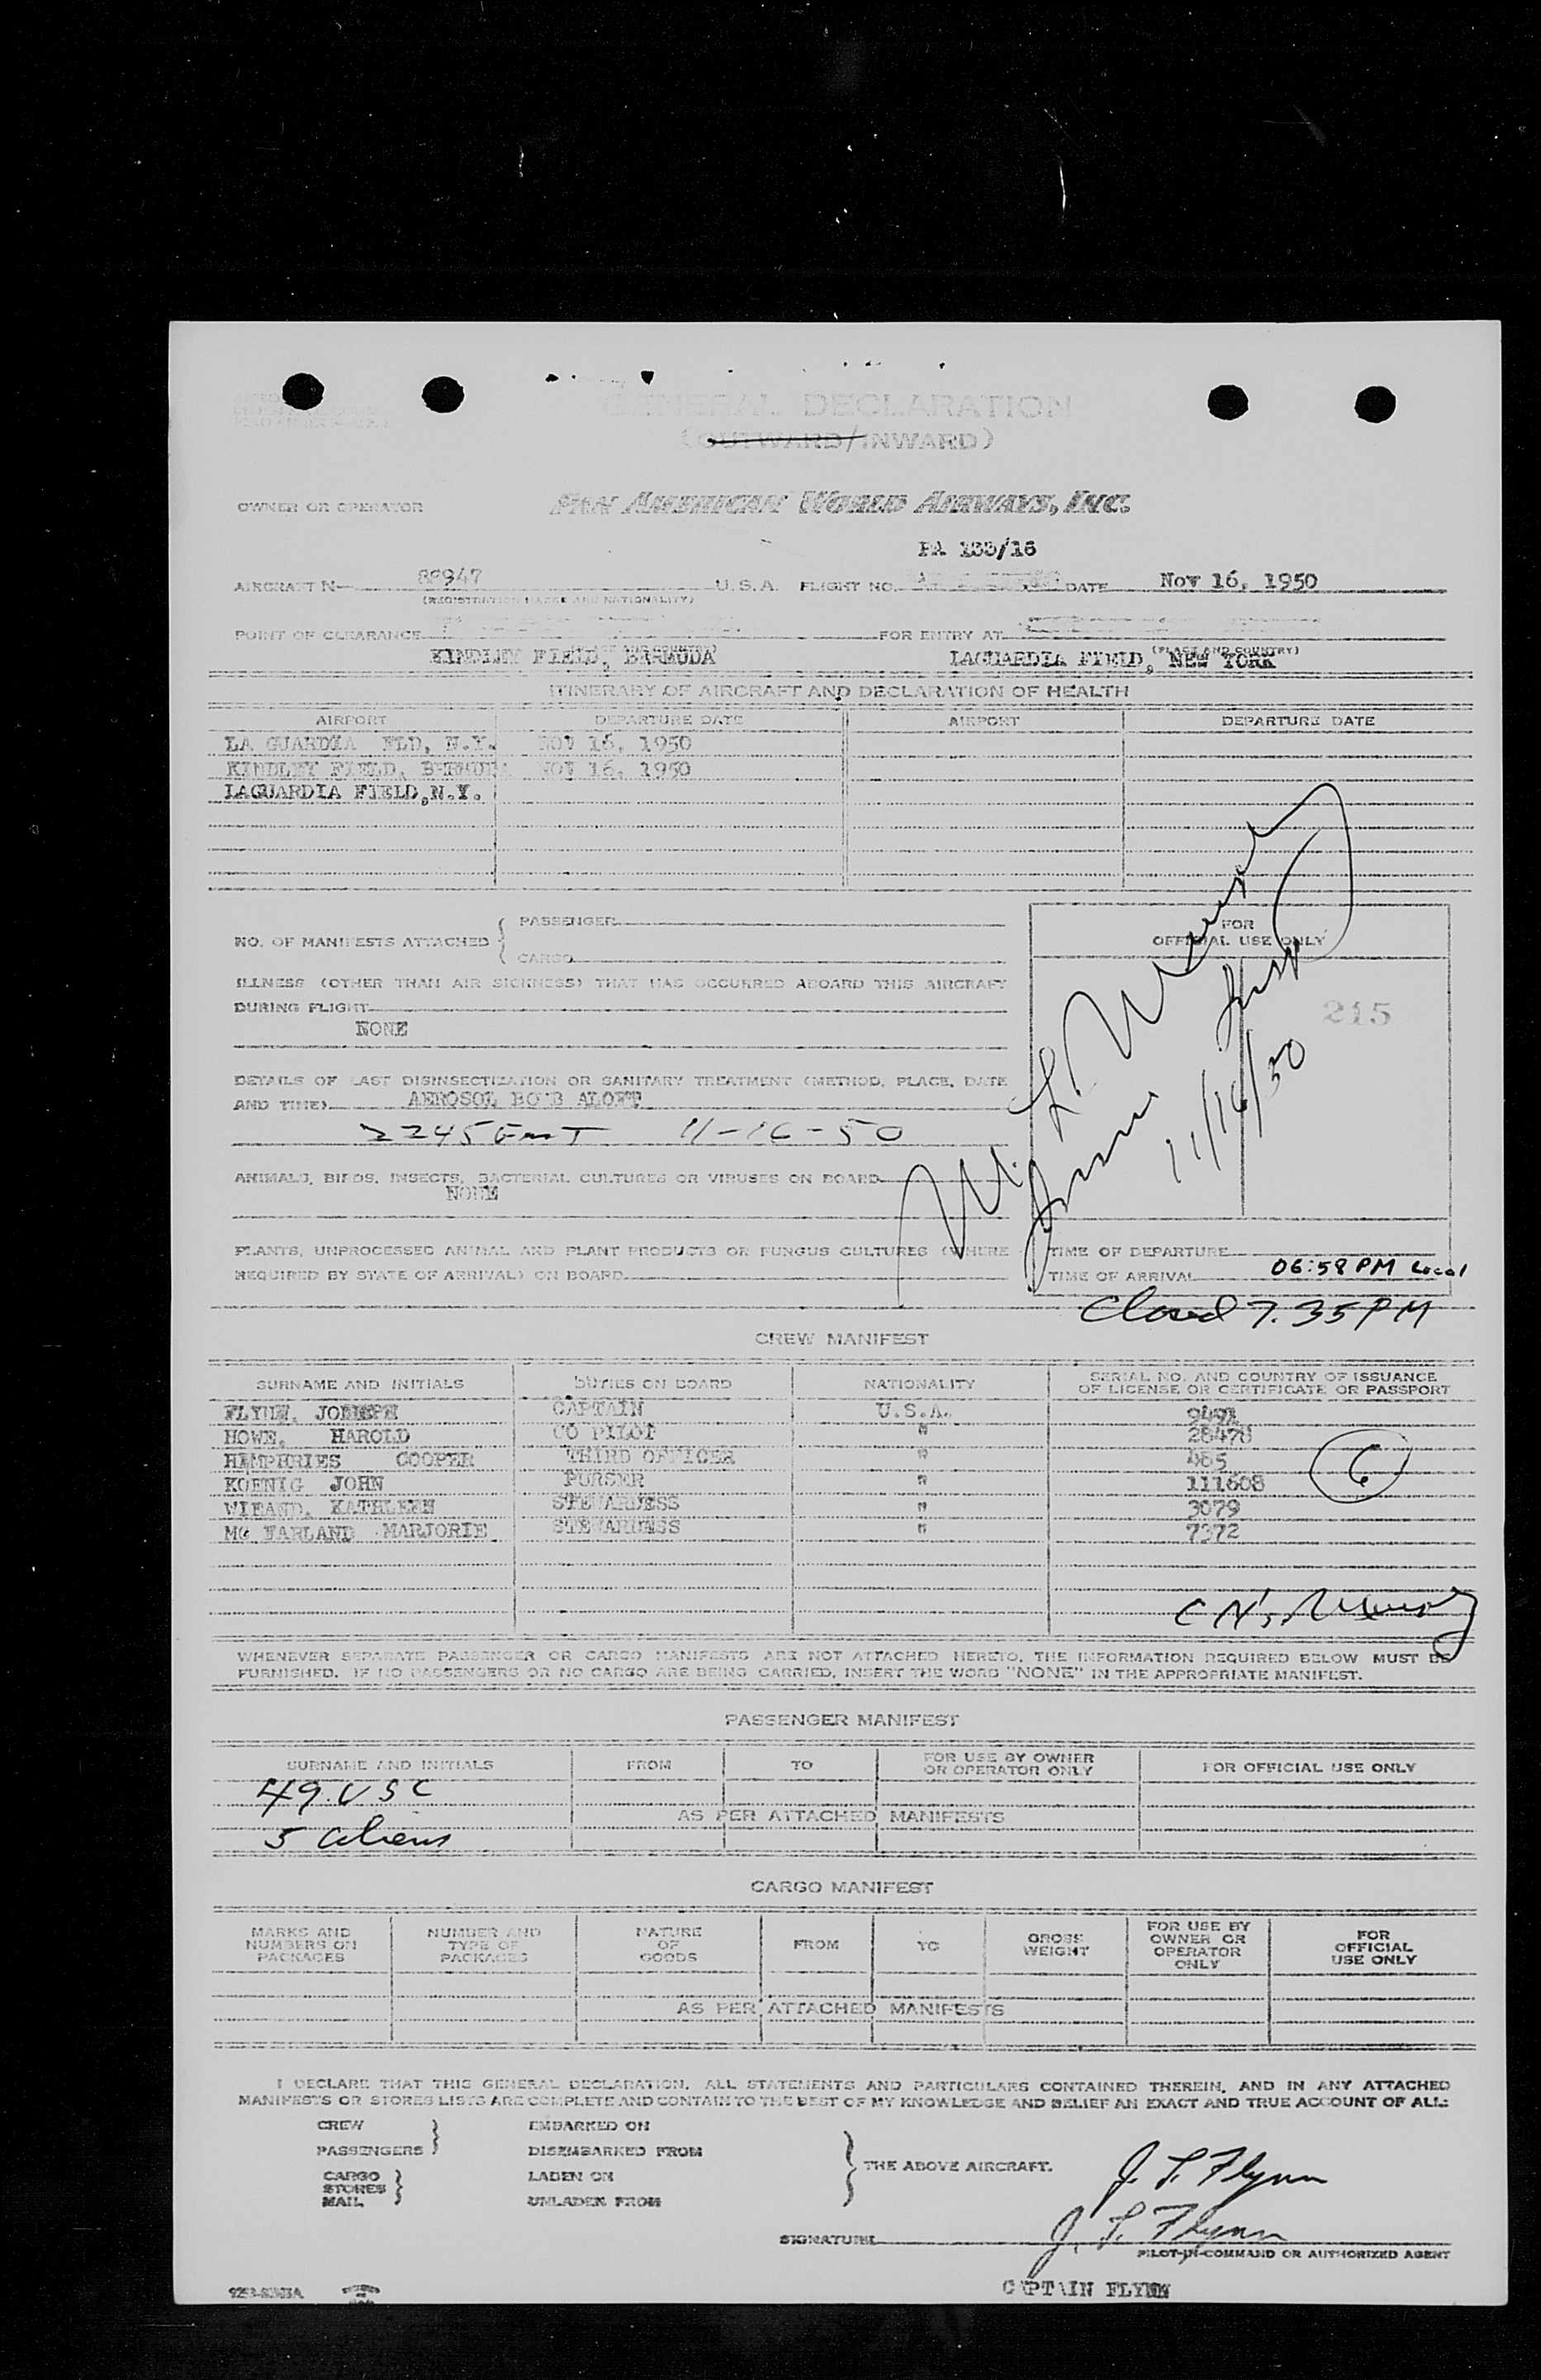 GENERAL DECLARATION
(OUTWARD/INWARD)
OWNER OR OPERATOR PAN AMERICAN WORLD AIRWAYS, INC.
PA 133/16
AIRCRAFT N- 88947 U.S.A. FLIGHT NO. DATE Nov 16, 1950
(REGISTRATION MARKS AND NATIONALITY)
POINT OF CLEARANCE FOR ENTRY AT
KINDLEY FIELD, BERMUDA LAGUARDIA FIELD, NEW YORK (PLACE AND COUNTRY)
ITINERARY OF AIRCRAFT AND DECLARATION OF HEALTH
AIRPORT DEPARTURE DATE AIRPORT DEPARTURE DATE
LA GUARDIA FLD, N.Y. NOV 16, 1950
KINDLEY FIELD, BERMUDA NOV 16, 1950
LAGUARDIA FIELD,N.Y.
NO. OF MANIFESTS ATTACHED { PASSENGER
CARGO
FOR OFFICIAL USE ONLY
215
ILLNESS (OTHER THAN AIR SICKNESS) THAT HAS OCCURRED ABOARD THIS AIRCRAFT
DURING FLIGHT
NONE
DETAILS OF LAST DISINSECTIZATION OR SANITARY TREATMENT (METHOD, PLACE, DATE
AND TIME) AEROSOL BOMB ALOFT
2245 GMT 11-16-50
11/16/50
ANIMALS, BIRDS, INSECTS, BACTERIAL CULTURES OR VIRUSES ON BOARD
NONE
PLANTS, UNPROCESSED ANIMAL AND PLANT PRODUCTS OR FUNGUS CULTURES (WHERE
REQUIRED BY STATE OF ARRIVAL) ON BOARD
TIME OF DEPARTURE
TIME OF ARRIVAL 06:58 PM Local
Closed 7.35 PM
CREW MANIFEST
SURNAME AND INITIALS DUTIES ON BOARD NATIONALITY SERIAL NO. AND COUNTRY OF ISSUANCE OF LICENSE OR CERTIFICATE OR PASSPORT
FLYNN, JOSEPH CAPTAIN U.S.A. 9491
HOWE, HAROLD CO PILOT " 28478
HEMPHRIES COOPER THIRD OFFICER " 465
KOENIG JOHN PURSER " 111608
WIEAND, KATHLEEN STEWARDESS " 3079
Mc FARLAND MARJORIE STEWARDESS " 7372
6
WHENEVER SEPARATE PASSENGER OR CARGO MANIFESTS ARE NOT ATTACHED HERETO, THE INFORMATION REQUIRED BELOW MUST BE
FURNISHED. IF NO PASSENGERS OR NO CARGO ARE BEING CARRIED, INSERT THE WORD "NONE" IN THE APPROPRIATE MANIFEST.
PASSENGER MANIFEST
SURNAME AND INITIALS FROM TO FOR USE BY OWNER OR OPERATOR ONLY FOR OFFICIAL USE ONLY
49 USC
AS PER ATTACHED MANIFESTS
5 aliens
CARGO MANIFEST
MARKS AND NUMBERS ON PACKAGES NUMBER AND TYPE OF PACKAGES NATURE OF GOODS FROM TO GROSS WEIGHT FOR USE BY OWNER OR OPERATOR ONLY FOR OFFICIAL USE ONLY
AS PER ATTACHED MANIFESTS
I DECLARE THAT THIS GENERAL DECLARATION, ALL STATEMENTS AND PARTICULARS CONTAINED THEREIN, AND IN ANY ATTACHED
MANIFESTS OR STORES LISTS ARE COMPLETE AND CONTAIN TO THE BEST OF MY KNOWLEDGE AND BELIEF AN EXACT AND TRUE ACCOUNT OF ALL:
CREW EMBARKED ON
PASSENGERS DISEMBARKED FROM
CARGO LADEN ON THE ABOVE AIRCRAFT.
STORES
MAIL UNLADEN FROM
J. T. Flynn
SIGNATURE J. T. Flynn
PILOT-IN-COMMAND OR AUTHORIZED AGENT
CAPTAIN FLYNN